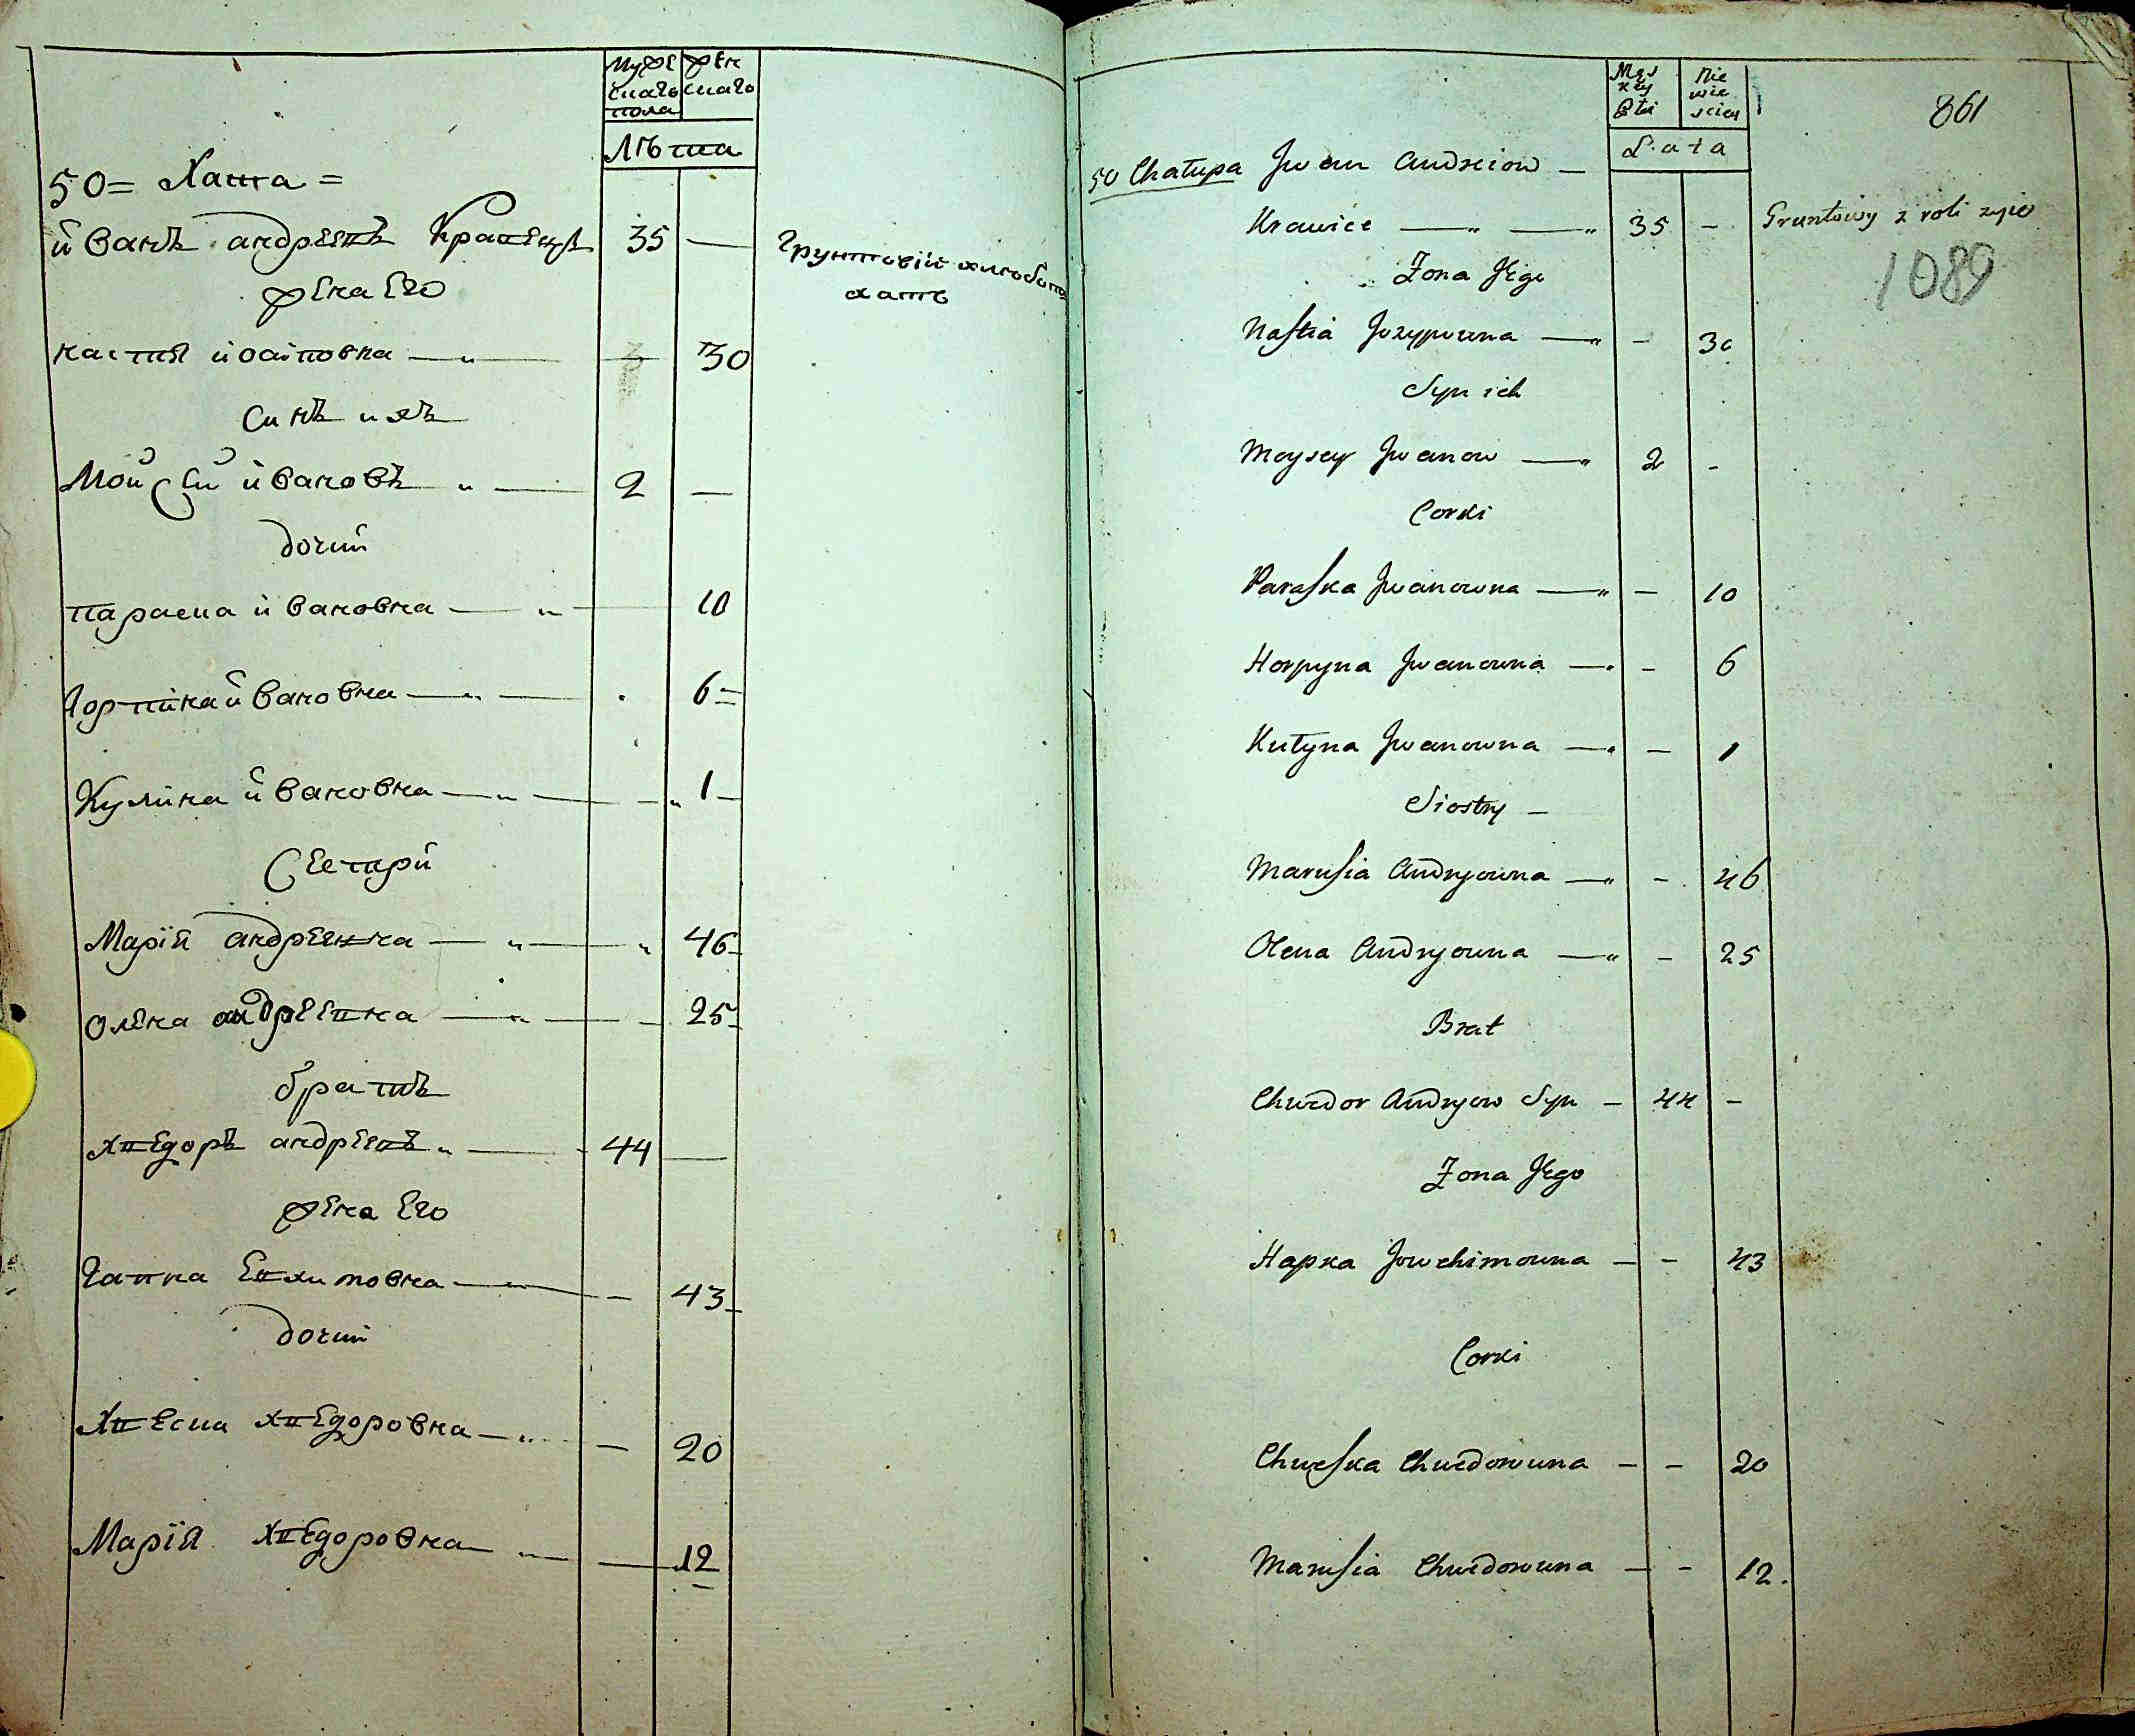 Муже
скаго
пола
жен
скаго
Лѣта
50= Хата =
иванъ андреевъ Кравецъ 35 —
жена его
настия иосиповна — 30
синъ ихъ
Мойсей ивановъ 2 —
дочки
параска ивановна — 10
Горпина ивановна — 6
Кулина ивановна — 1
Сестри
Марія андреевна — 46
олена андреевна — 25
братъ
хведоръ андреевъ 44 —
жена его
Гапка евхимовна — 43
дочки
Хвеска хведоровна — 20
Марія хведоровна — 12
Грунтовій хлеборобъ
Męz
kiy
Płci
Nie
wie
sciey
Lata
861
50 Chałupa Jwan Andreiow —
Krawiec — 35 — Gruntowy z roli żyie
1089
Żona Jego
Nastia Jozypowna — - 30
Syn ich
Moysey Jwanow — 2 -
Corki
Paraska Jwanowna — - 10
Horpyna Jwanowna — - 6
Kulyna Jwanowna — - 1
Siostry —
Marusia Andryowna — - 46
Olena Andryowna — - 25
Brat
Chwedor Andryow Syn — 44 -
Żona Jego
Hapka Jowchimowna — - 43
Corki
Chweska Chwedorowna — - 20
Marusia Chwedorowna — - 12.